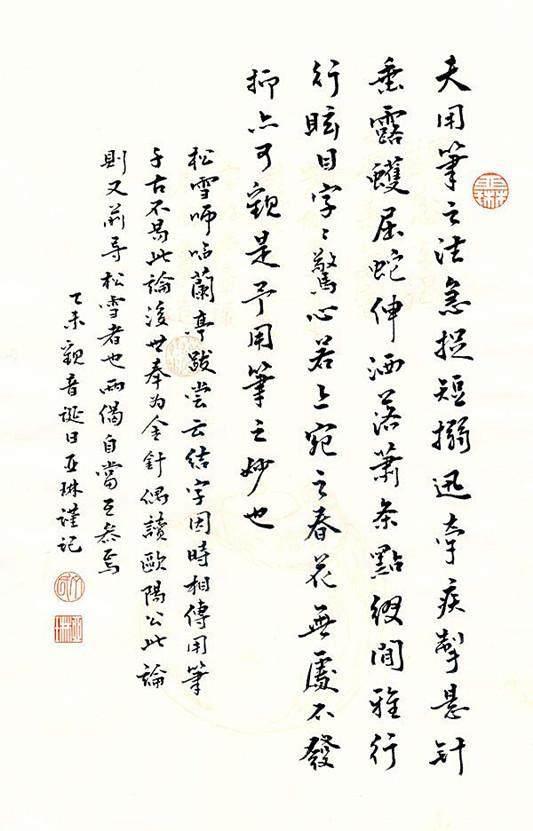 夫用筆之法急捉短搦迅牽疾掣悬针
垂露蠖屈蛇伸洒落蕭条點缀閒雅行
行眩目字〻驚心若上宛之春花無處不發
抑亦可觀是予用筆之妙也
松雪师临蘭亭跋嘗云結字因時相傳用筆
千古不易此論後世奉为金針偶讀歐陽公此論
則又前导松雪者也两偈自當互参焉
乙未觀音誕日亚琳謹記